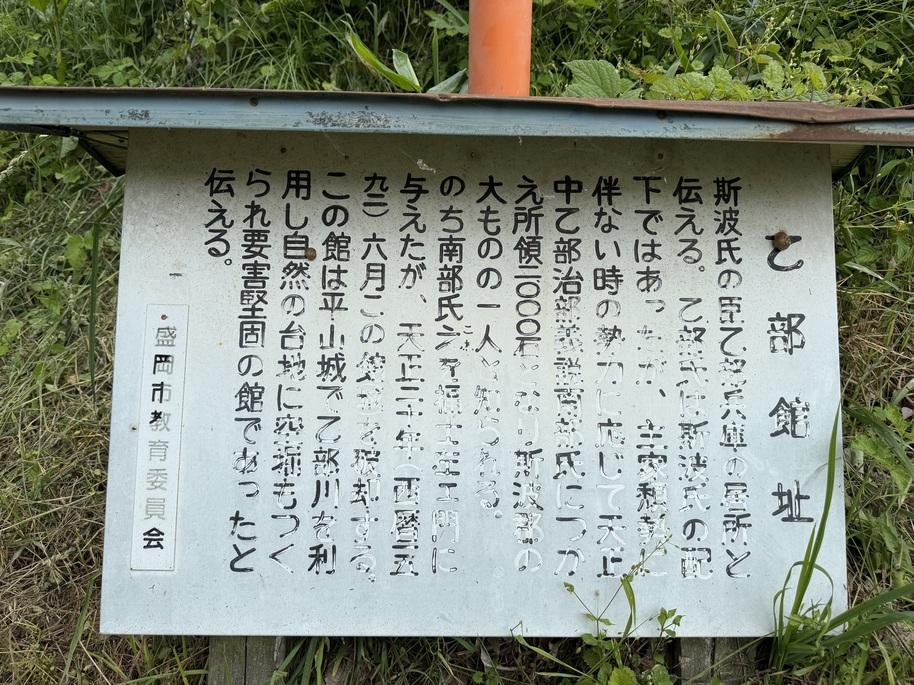 乙部館址
斯波氏の臣乙部兵庫の居所と
伝える。乙部氏は斯波氏の配
下ではあったが、主家頽勢に
伴ない時の勢力に応じて天正
中乙部治部義説南部氏につか
え所領二〇〇〇石となり斯波郡の
大ものの一人と知られる。
のち南部氏 福士 右エ門に
与えたが、天正二十年(西暦一五
九二)六月この館を破却する。
この館は平山城で乙部川を利
用し自然の台地に空堀もつく
られ要害堅固の館であったと
伝える。
盛岡市教育委員会